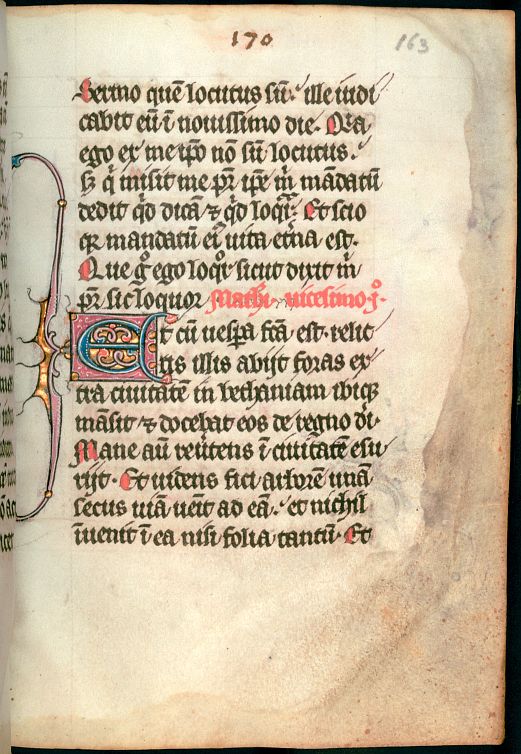 170
163
Sermo quē locutus sū. ille iudi
cabit eū ī nouissimo die. Q̄a
ego ex me ip̄o nō sū locutus.
Sꝫ q̇ misit me pr̄. ip̄e m̄ mādatū
dedit qd̄ dicā ⁊ qd̄ loqr̄. Et scio
qꝛ mandatū eiꝰ uita et̄na est.
Que g̊ ego loqr̄ sicut dixit m̄
pr̄. sic loquor Mathi. uicesimo j̊.
Et cū uesꝑa fc̄a est. relic
tis illis abijt foras ex
tra ciuitatē in bethaniam ibiqꝫ
māsit ⁊ docebat eos de regno di.
Mane aū reu̾tens ī ciuitatē esu
rijt. Et uidens fici arborē unā
secus uiā uēit ad eā. et nichil
īuenit ī ea nisi folia tantū. Et